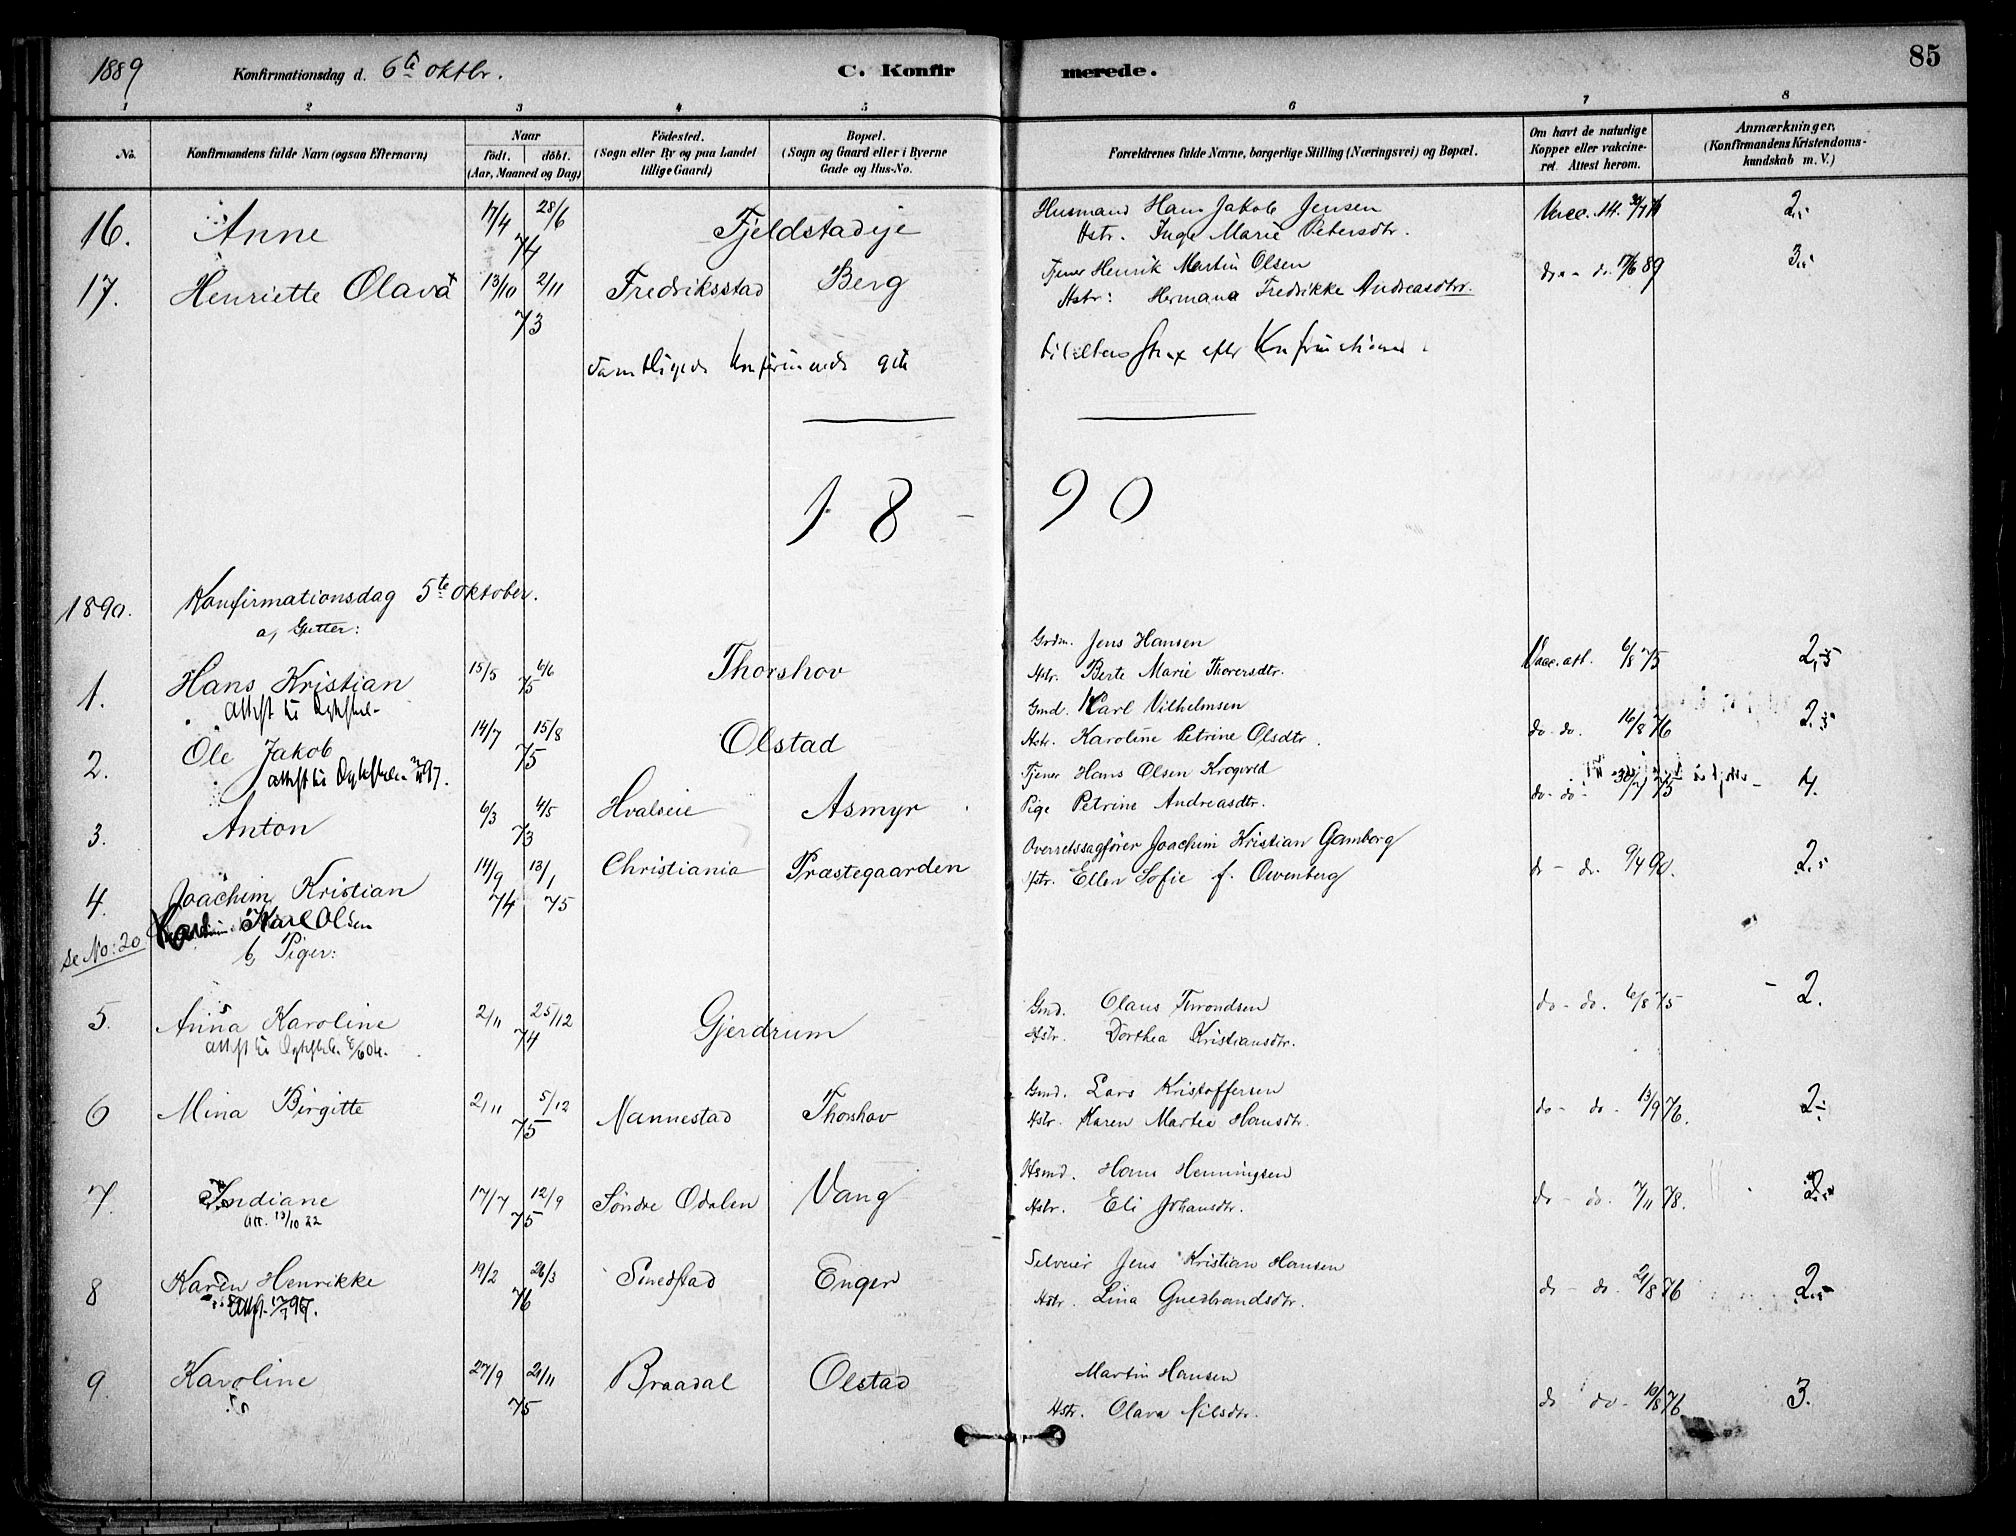 1889 Konfirmationsdag d. 6te oktbr. C. Konfirmerede. 85
1 2 3 4 5 6 7 8
No. Konfirmandens fulde Navn (ogsaa Efternavn) Naar födt. döbt. (Aar, Maaned og Dag) Födested. (Sogn eller By og paa Landet tillige Gaard) Bopæl. (Sogn og Gaard eller i Byerne Gade og Hus-No. Forældrenes fulde Navne, borgerlige Stilling (Næringsvei) og Bopæl. Om havt de naturlige Kopper eller vakcineret. Attest herom. Anmærkninger. (Konfirmandens Kristendomskundskab m. V.)
16. Anne 17/4 28/6 74 Fjeldstadeje Husmand Hans Jakob Jensen
Hstr. Inge Marie Petersdtr. Vacc. Att. 2.
17. Henriette Olava 13/10 2/11 73 Fredriksstad Berg Tjener Henrik Martin Olsen
Hstr: Hermana Fredrikke Andreasdtr. do - do. 17/6 89 3.
Samtligeds Konfirmerede gik til alters strax efter Konfirmationen.
18-90
1890. Konfirmationsdag 5te oktober.
a, Gutter:
1. Hans Kristian 15/5 6/6 75 Thorshov Grdm. Jens Hansen
Hstr. Berte Marie Thorersdtr. Vacc. att. 6/8 75 2,5
2. Ole Jakob 14/7 15/8 75 Olstad Gmd. Karl Vilhelmsen
Hstr. Karoline Petrine Olsdtr. do. do. 16/8 76 2.5
3. Anton 6/3 4/5 73 Hvalseie Asmyr Tjener Hans Olsen Krogvold
Pige Petrine Andreasdtr. do - do 4.
4. Joachim Kristian 14/9 74 13/1 75 Christiania Præstegaarden Overretssagfører Joachim Kristian Gamborg
Hstr. Ellen Sofie f. Owenberg do - do. 9/4 90. 2.
se No: 20 Karl Olsen
b, Piger:
5. Anna Karoline 2/11 25/12 74 Gjerdrum Gmd. Olaus Throndsen
Hstr. Dorthea Kristiansdtr. do - do. 6/8 75 2.
6 Mina Birgitte 2/11 5/12 75 Nannestad Thorshov Gmd. Lars Kristoffersen
Hstr. Karen Martea Hansdtr. do - do. 13/9 76. 2.
7. Indiane 17/7 12/9 75 Søndre Odalen Vang Hsmd. Hans Henningsen
Att. 13/10 22
Hstr. Eli Johansdtr. do - do. 7/11 78. 2.
8 Karen Henrikke 19/2 26/3 76 Smedstad Enger Selveier Jens Kristian Hansen
Hstr. Lina Guldbrandsdtr. do - do. 21/8 76 2.
9. Karoline 27/9 21/11 75 Braadal Olstad Martin Hansen
Hstr. Olava Nilsdtr. do do - 10/8 76 3.